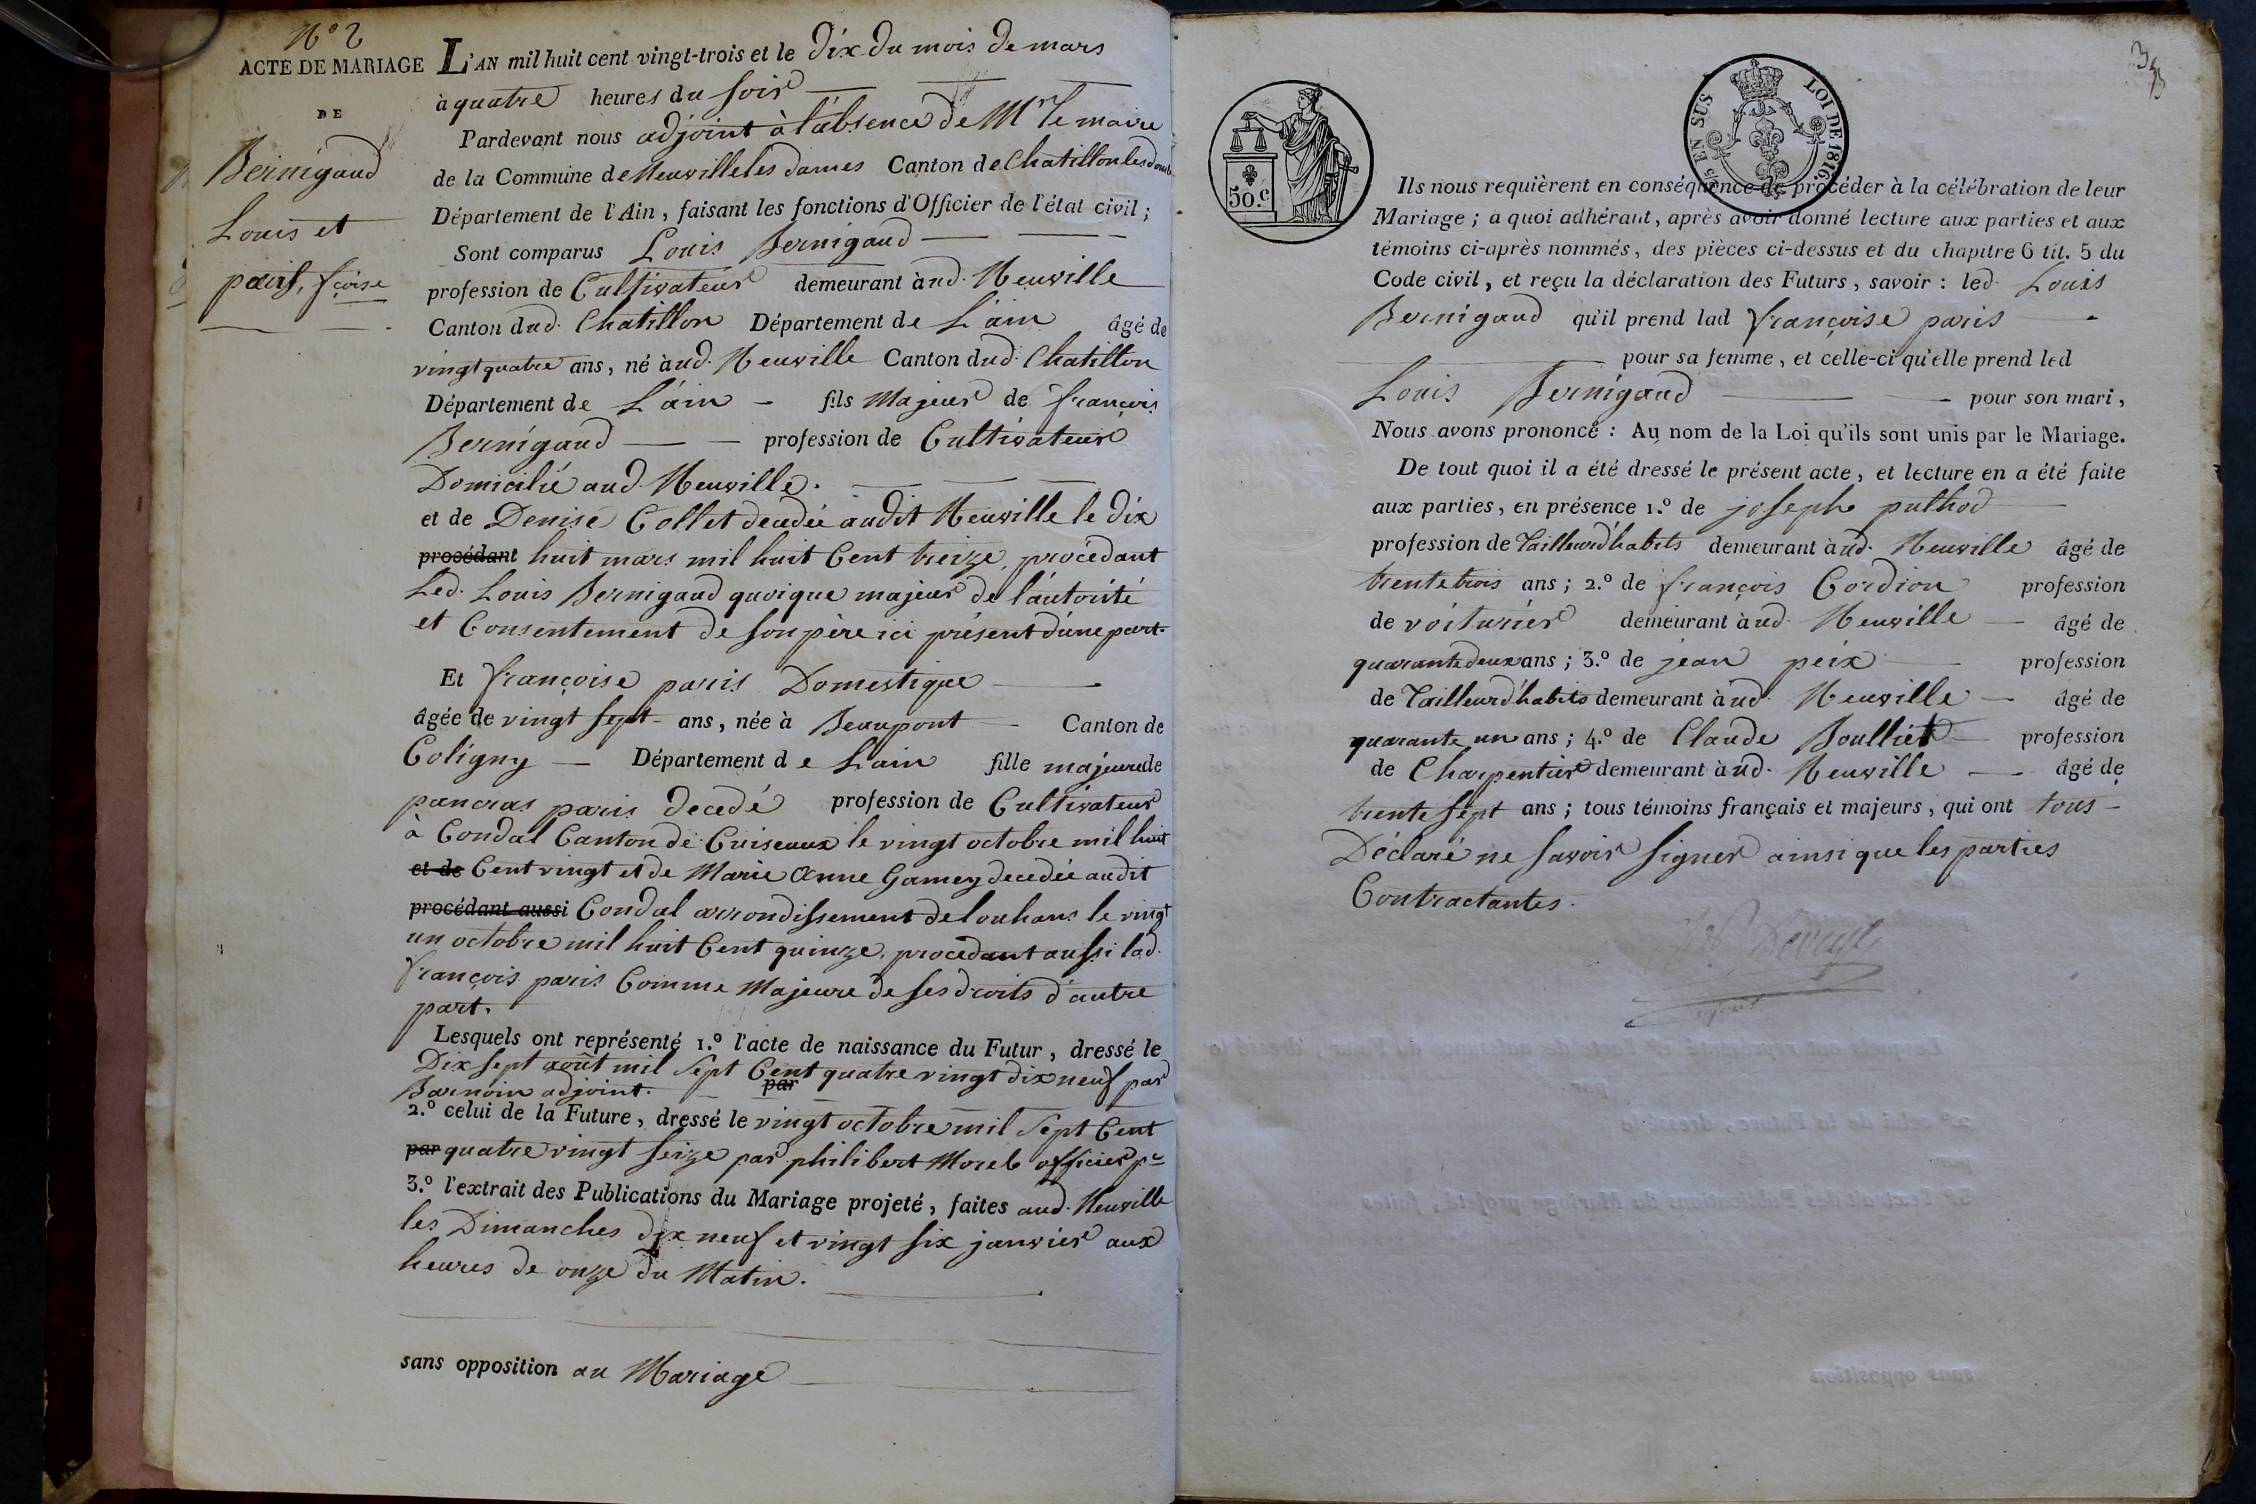 N° 2
ACTE DE MARIAGE
DE
Bernigaud
Louis et
paris, fçoise
L'AN mil huit cent vingt-trois et le dix du mois de mars
à quatre heures du soir
Pardevant nous adjoint à l'absence de Mr le maire
de la Commune de Neuville les dames Canton de Chatillon les domb
Département de l'Ain, faisant les fonctions d'Officier de l'état civil ;
Sont comparus Louis Bernigaud
profession de Cultivateur demeurant à ud. Neuville
Canton dud. Chatillon Département de L'ain âgé de
vingt quatre ans, né à ud. Neuville Canton dud. Chatillon
Département de L'ain fils Majeur de françois
Bernigaud profession de Cultivateur
Domicilié aud. Neuville.
et de Denise Collet decedée audit Neuville le dix
procédant huit mars mil huit Cent treize, procédant
Led. Louis Bernigaud quoique majeur de l'autorité
et Consentement de son père ici présent d'une part.
Et françoise paris Domestique
âgée de vingt sept ans, née à Beaupont Canton de
Coligny Département de L'ain fille majeure de
pancras paris decedé profession de Cultivateur
à Condal Canton de Cuiseaux le vingt octobre mil huit
et de Cent vingt et de Marie Anne Gamey decedée audit
procédant aussi Condal arrondissement de louhans le vingt
un octobre mil huit Cent quinze, procedant aussi lad.
françois paris Comme Majeure de ses droits d'autre
part.
Lesquels ont représenté 1.° l'acte de naissance du Futur, dressé le
Dix sept août mil Sept Cent quatre vingt dix neuf par
par
Barnoin adjoint.
2.° celui de la Future, dressé le vingt octobre mil Sept Cent
par quatre vingt seize par philibert Morel officier pc
3.° l'extrait des Publications du Mariage projeté, faites aud. Neuville
les Dimanches dix neuf et vingt six janvier aux
heures de onze du Matin.
sans opposition au Mariage
3
50.c
5/5 EN SUS LOI DE 1816.
Ils nous requièrent en conséquence de procéder à la célébration de leur
Mariage ; à quoi adhérant, après avoir donné lecture aux parties et aux
témoins ci-après nommés, des pièces ci-dessus et du chapitre 6 tit. 5 du
Code civil, et reçu la déclaration des Futurs, savoir : led. Louis
Bernigaud qu'il prend lad françoise paris
pour sa femme, et celle-ci qu'elle prend led
Louis Bernigaud pour son mari,
Nous avons prononcé : Au nom de la Loi qu'ils sont unis par le Mariage.
De tout quoi il a été dressé le présent acte, et lecture en a été faite
aux parties, en présence 1.° de joseph puthod
profession de Tailleur d'habits demeurant à ud. Neuville âgé de
trente trois ans ; 2.° de françois Cordion profession
de voiturier demeurant à ud. Neuville âgé de
quarante deux ans ; 3.° de jean peix profession
de Tailleur d'habits demeurant à ud. Neuville âgé de
quarante un ans ; 4.° de Claude Boulliet profession
de Charpentier demeurant à ud. Neuville âgé de
trente sept ans ; tous témoins français et majeurs, qui ont tous
Déclaré ne savoir signer ainsi que les parties
Contractantes.